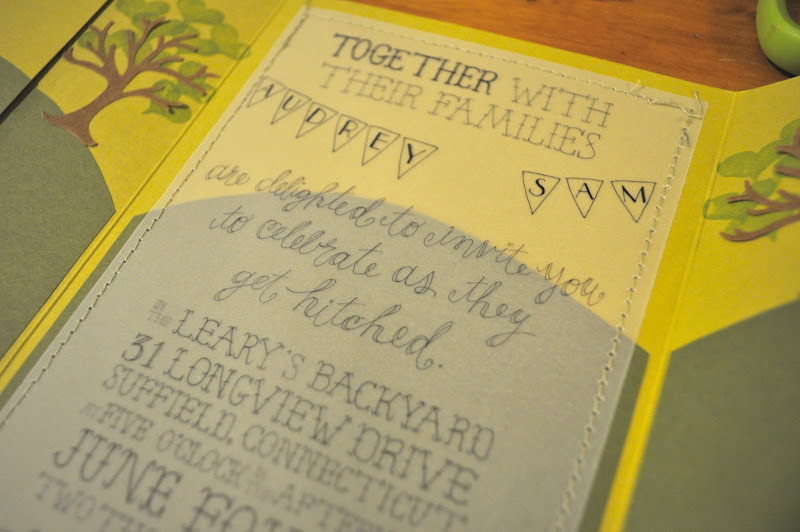 TOGETHER WITH
THEIR FAMILIES
AUDREY SAM
are delighted to invite you
to celebrate as they
get hitched.
IN THE LEARY'S BACKYARD
31 LONGVIEW DRIVE
SUFFIELD, CONNECTICUT
AT FIVE O'CLOCK IN THE AFTERNOON
JUNE
TWO